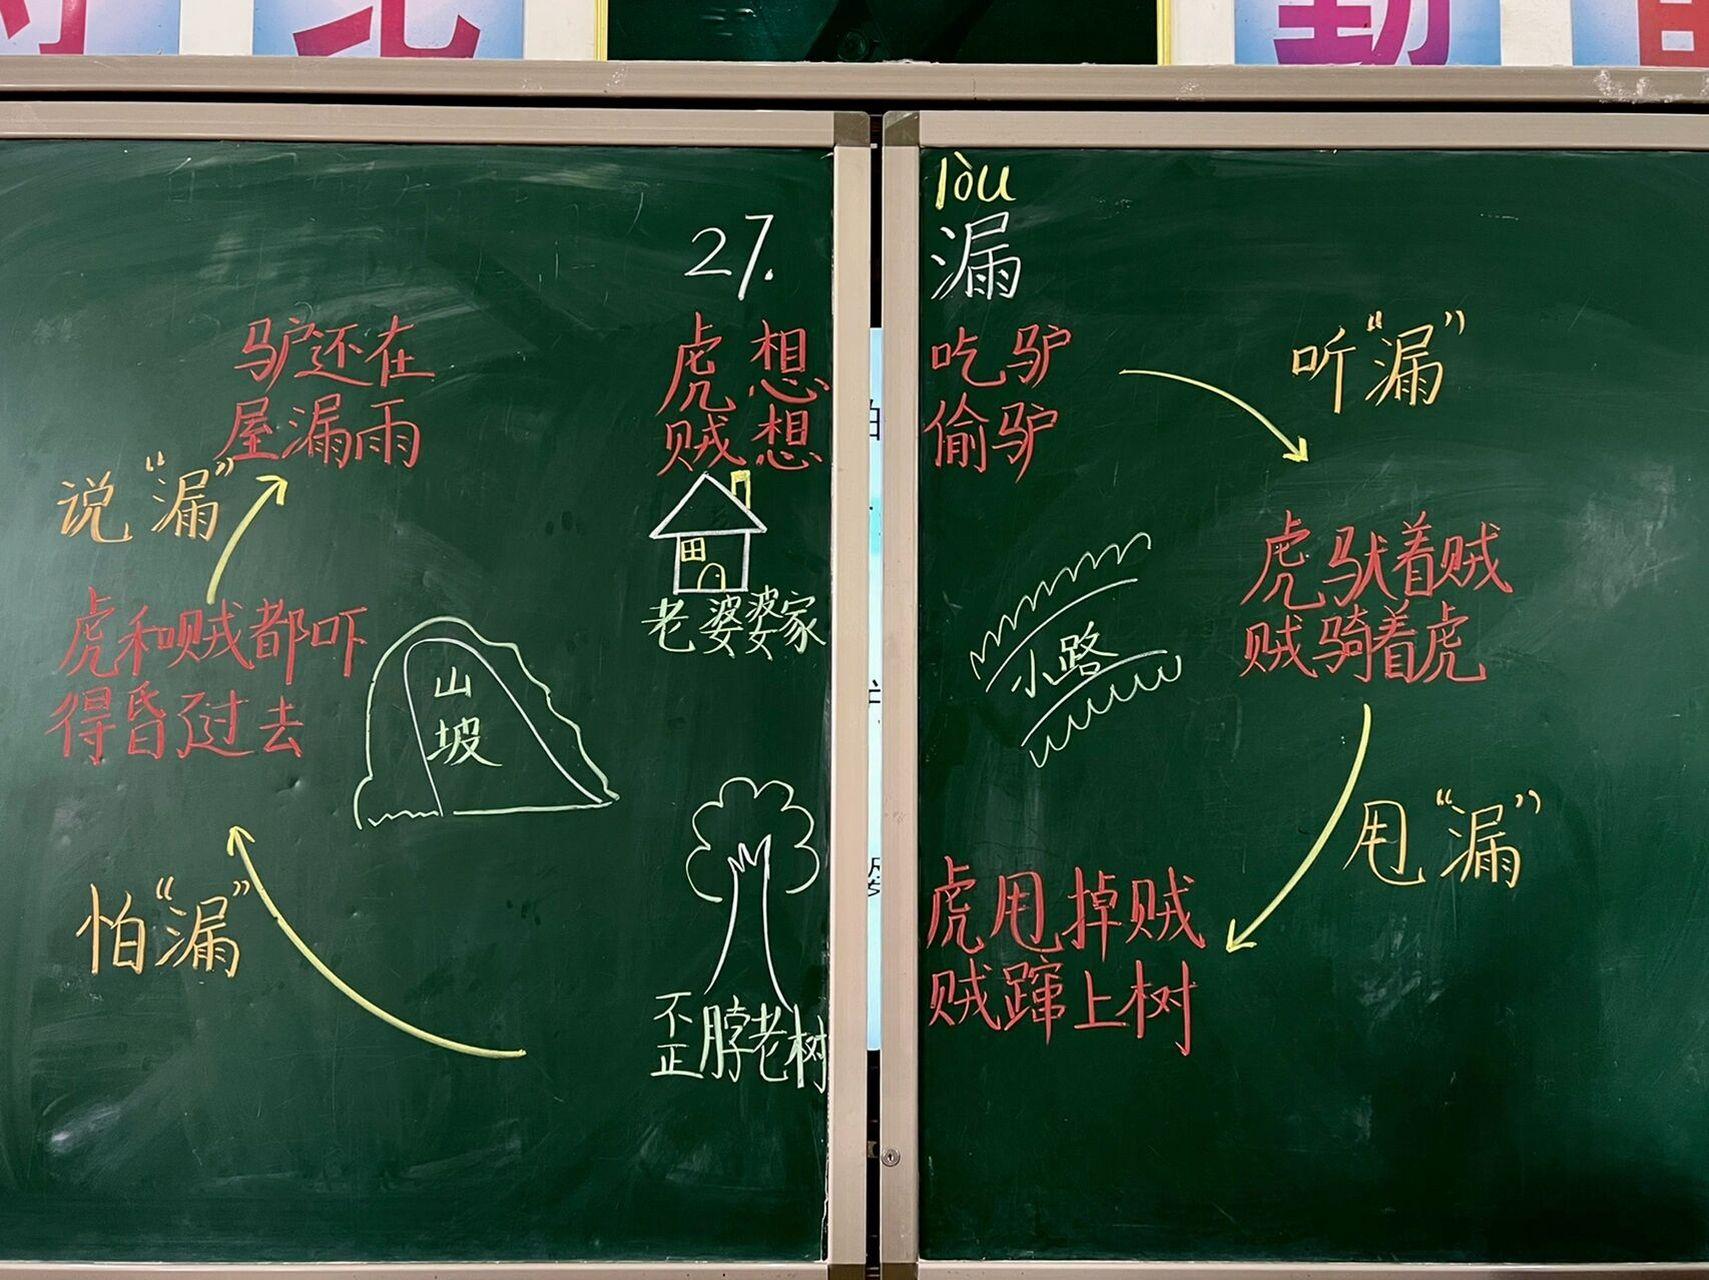 27.
lòu
漏
虎想吃驴
贼想偷驴
老婆婆家
听“漏”
虎驮着贼
贼骑着虎
小路
甩“漏”
虎甩掉贼
贼蹿上树
歪脖老树
怕“漏”
虎和贼都吓
得昏了过去
山
坡
说“漏”
驴还在
屋漏雨